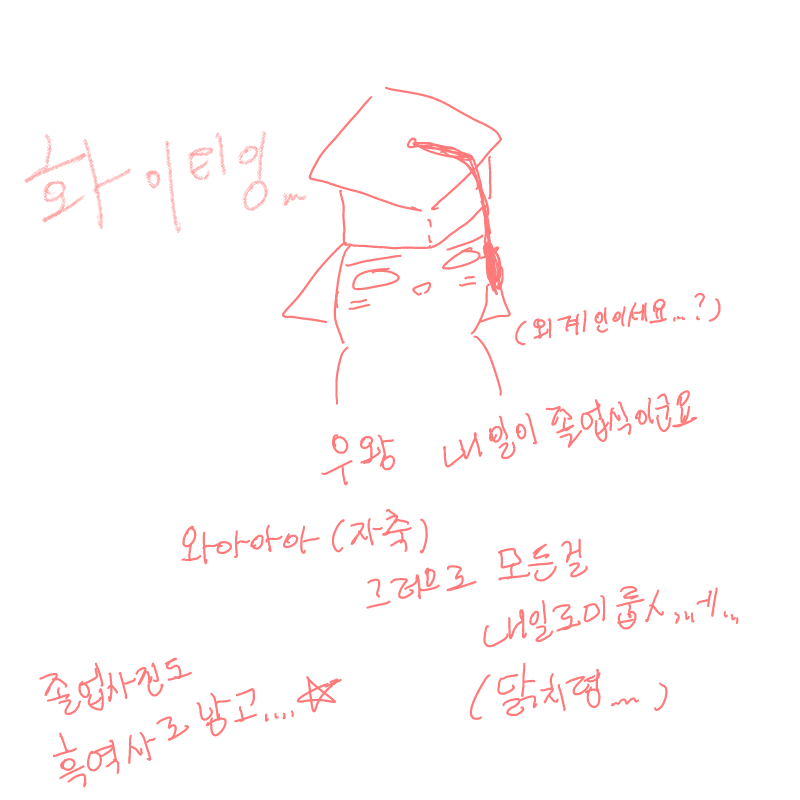 화이티잉...
(외계인이세요...?)
우왕 내일이 졸업식이군요
와아아아 (자축)
그러므로 모든걸
내일로미룹시,,,네...
(닭치렴...)
졸업사진도
흑역사로 남고....☆